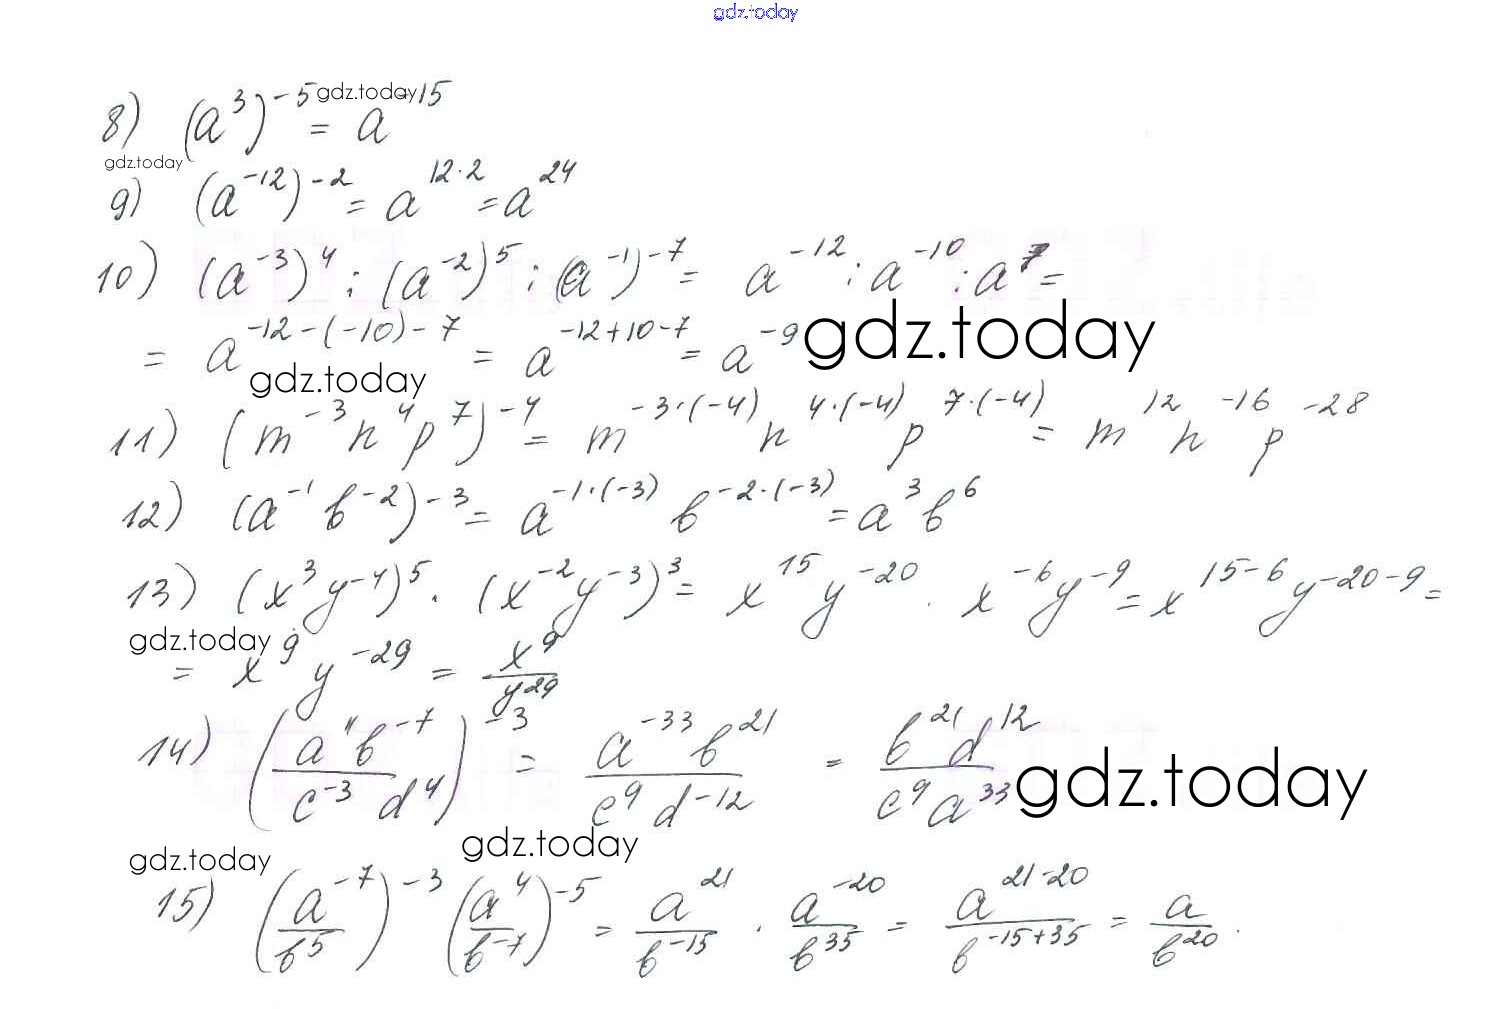 gdz.today
8) (a³)⁻⁵ = a⁻¹⁵
gdz.today
gdz.today
9) (a⁻¹²)⁻² = a¹²·² = a²⁴
10) (a⁻³)⁴ : (a⁻²)⁵ : (a⁻¹)⁻⁷ = a⁻¹² : a⁻¹⁰ : a⁷ =
= a⁻¹²⁻⁽⁻¹⁰⁾⁻⁷ = a⁻¹²⁺¹⁰⁻⁷ = a⁻⁹
gdz.today
gdz.today
11) (m⁻³n⁴p⁷)⁻⁴ = m⁻³·⁽⁻⁴⁾ n⁴·⁽⁻⁴⁾ p⁷·⁽⁻⁴⁾ = m¹² n⁻¹⁶ p⁻²⁸
12) (a⁻¹ b⁻²)⁻³ = a⁻¹·⁽⁻³⁾ b⁻²·⁽⁻³⁾ = a³ b⁶
13) (x³y⁻⁴)⁵ · (x⁻²y⁻³)³ = x¹⁵ y⁻²⁰ · x⁻⁶ y⁻⁹ = x¹⁵⁻⁶ y⁻²⁰⁻⁹ =
gdz.today
= x⁹ y⁻²⁹ = x⁹/y²⁹
14) (a¹¹b⁻⁷/c⁻³d⁴)⁻³ = a⁻³³b²¹/c⁹d⁻¹² = b²¹d¹²/c⁹a³³
gdz.today
gdz.today
gdz.today
15) (a⁻⁷/b⁵)⁻³ (a⁴/b⁻⁷)⁻⁵ = a²¹/b⁻¹⁵ · a⁻²⁰/b³⁵ = a²¹⁻²⁰/b⁻¹⁵⁺³⁵ = a/b²⁰.